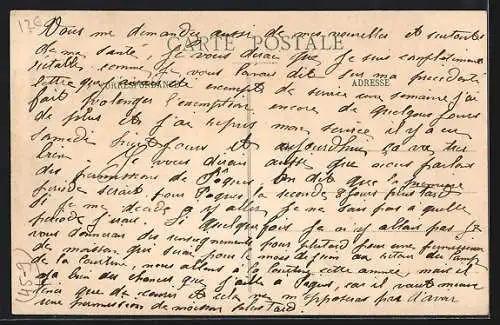 Vous me demandez aussi de mes nouvelles et surtout
de ma santé, je vous dirai que je suis complètement
CARTE POSTALE
rétabli comme je vous l'avais dit sur ma précédente
lettre que j'avais été exempt de service une semaine j'ai
CORRESPONDANCE
ADRESSE
fait prolonger l'exemption encore de quelques jours
de plus et j'ai repris mon service il y a eu
samedi huit jours et aujourd'hui ça va très
bien. Je vous dirais aussi que nous parlons
des permissions de Pâques on dit que la première
période serait pour Pâques la seconde 8 jours plus tard
si je me décide à y aller je ne sais pas quelle
période j'irais. Si quelquefois je n'y allais pas je
vous donnerai des renseignements pour plus tard pour une permission
de moisson que pour le mois de juin au retour du camp
de la Courtine, nous allons à la Courtine cette année, mais il
y a bien des chances que j'aille à Pâques, car il vaut mieux
tenir que de courir et cela ne m'opposera pas d'avoir
une permission de moisson plus tard.